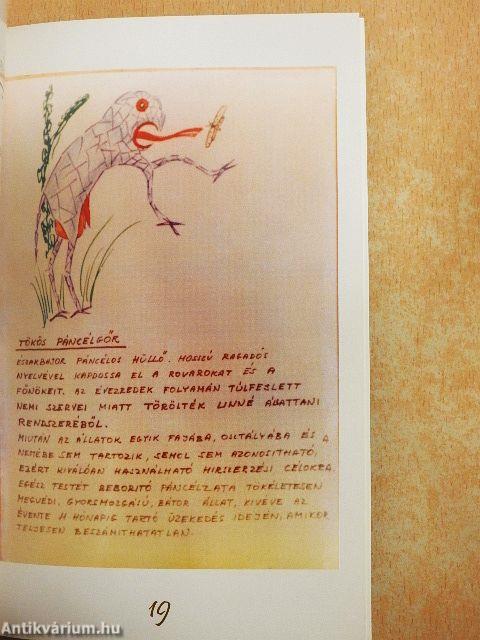 TÖKÖS PÁNCÉLGŐR
ÉSZAKBAJOR PÁNCÉLOS HÜLLŐ. HOSSZÚ RAGADÓS
NYELVÉVEL KAPDOSSA EL A ROVAROKAT ÉS A
FŐNÖKEIT. AZ ÉVEZREDEK FOLYAMÁN TÚLFEJLETT
NEMI SZERVEI MIATT TÖRÖLTÉK LINNÉ ÁLLATTANI
RENDSZERÉBŐL.
MIUTÁN AZ ÁLLATOK EGYIK FAJÁBA, OSZTÁLYÁBA ÉS A
NEMÉBE SEM TARTOZIK, SEHOL SEM AZONOSITHATÓ,
EZÉRT KIVÁLÓAN HASZNÁLHATÓ HIRSZERZÉSI CÉLOKRA.
EGÉSZ TESTÉT BEBORITÓ PÁNCÉLZATA TÖKÉLETESEN
MEGVÉDI, GYORSMOZGÁSÚ, BÁTOR ÁLLAT, KIVÉVE AZ
ÉVENTE 11 HÓNAPIG TARTÓ ÜZEKEDÉS IDEJÉN, AMIKOR
TELJESEN BESZÁMITHATATLAN.
19
Antikvárium.hu